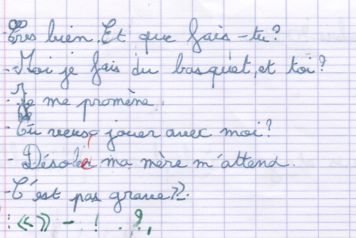 -Très bien. Et que fais-tu?
-Moi je fais du basquet, et toi?
-Je me promène.
-Tu veux jouer avec moi?
-Désolé ma mère m'attend.
-C'est pas grave?.
: «» - ! . ? ,